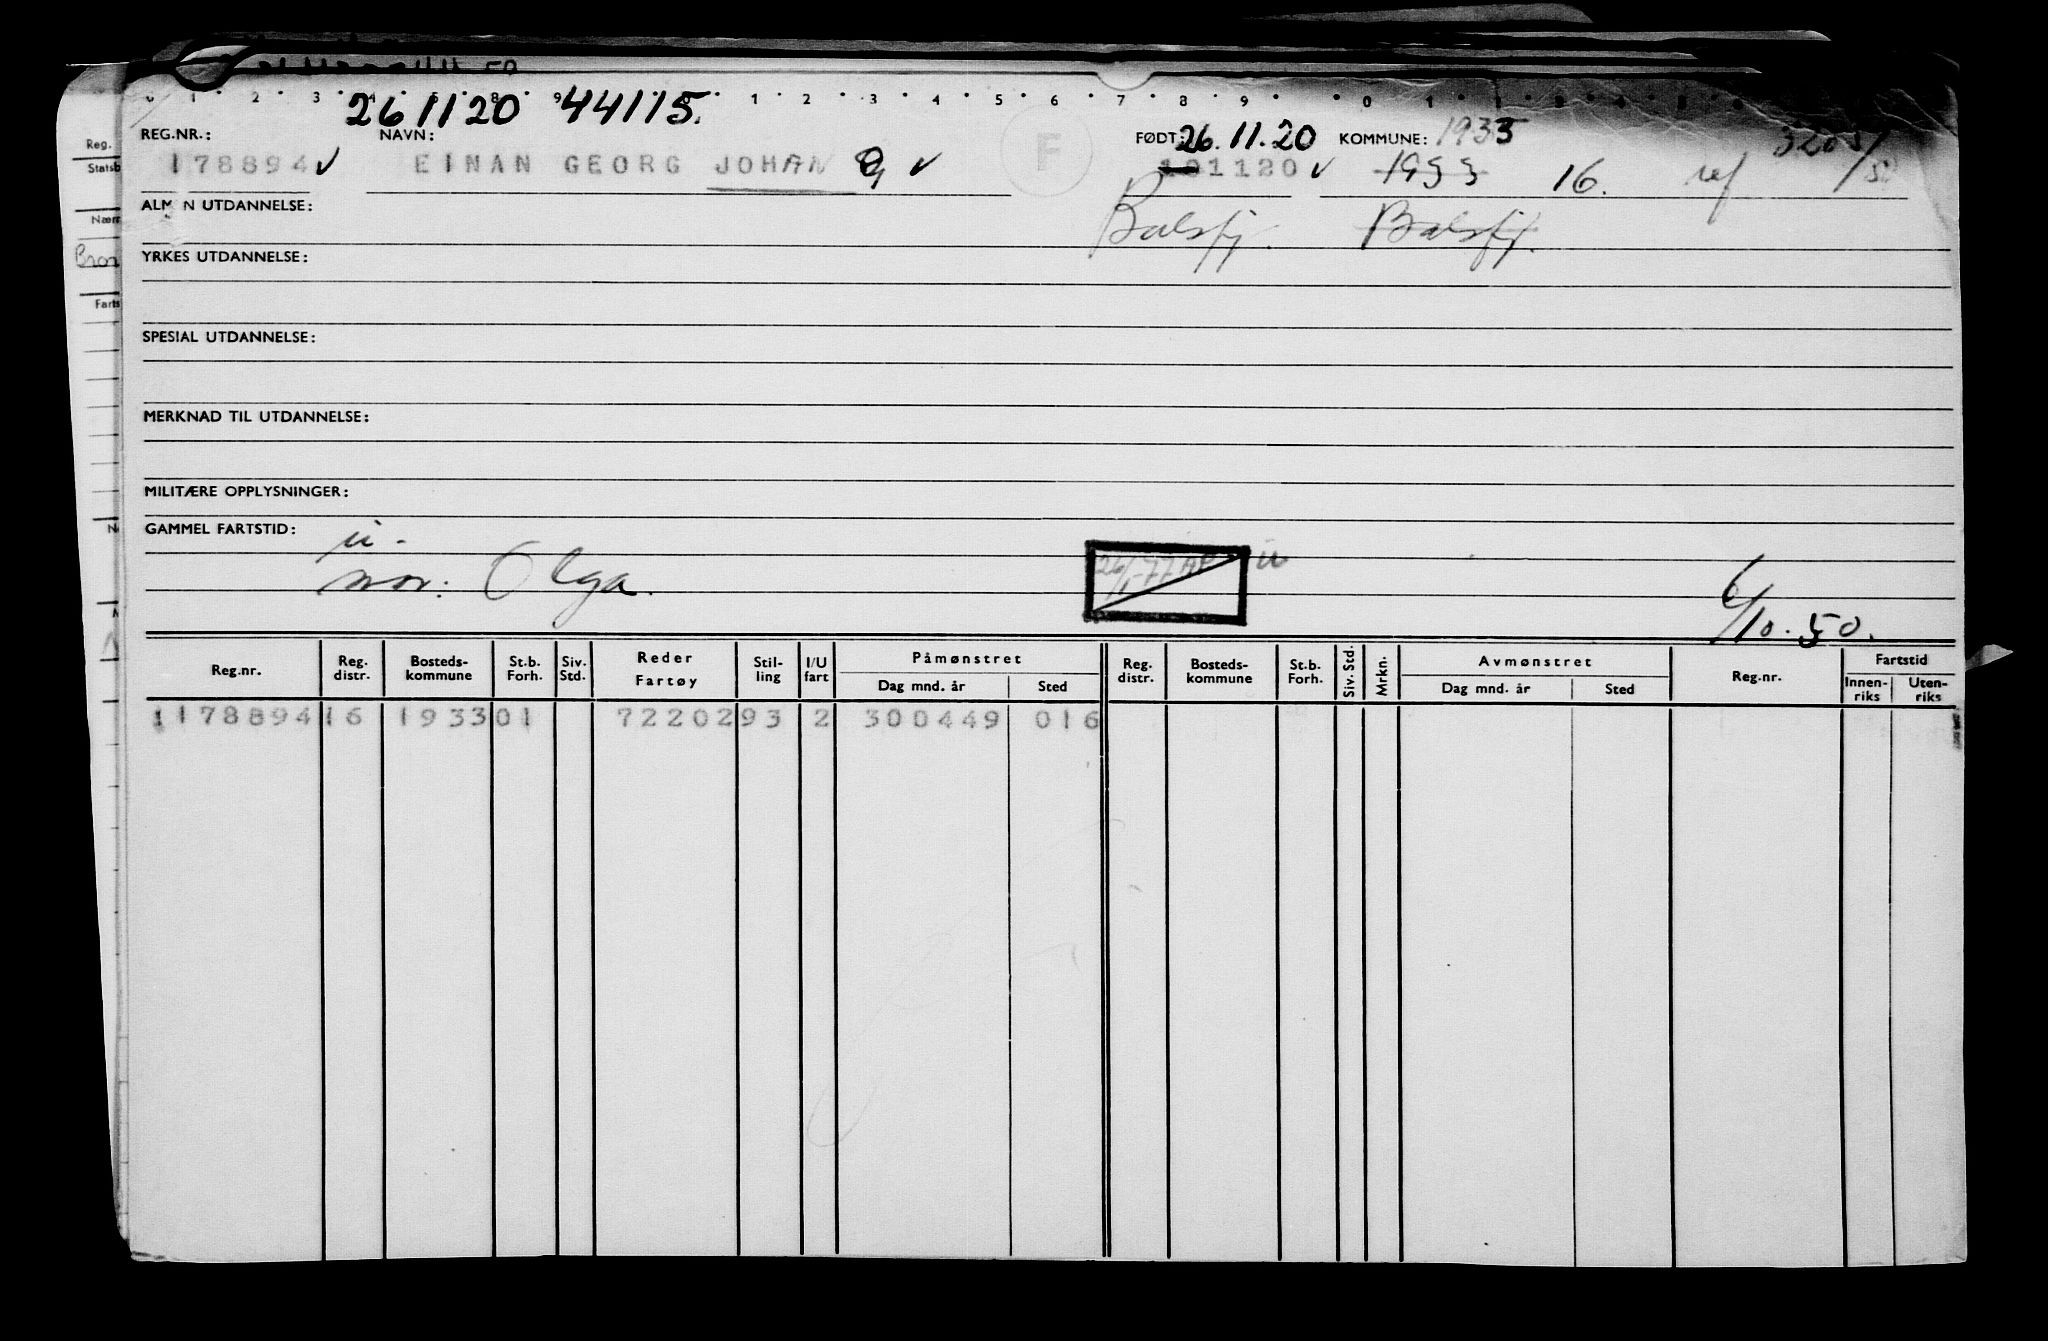 0 1 2 3 4 5 8 9 1 2 3 4 5 6 7 8 9 0 1
261120 44115.
REG.NR.: NAVN: FØDT: 26.11.20 KOMMUNE: 1933
178894 EINAN GEORG JOHAN F 101120 1933 16.
ALM N UTDANNELSE: Balsfj. Balsfj.
YRKES UTDANNELSE:
SPESIAL UTDANNELSE:
MERKNAD TIL UTDANNELSE:
MILITÆRE OPPLYSNINGER:
GAMMEL FARTSTID: u.
mor: Olga. 26/1-77 u
6/10.50.
Reg.nr. Reg. distr. Bosteds-kommune St.b. Forh. Siv. Std. Reder Fartøy Stil-ling I/U fart Påmønstret Dag mnd. år Sted Reg. distr. Bosteds-kommune St.b. Forh. Siv. Std. Mrkn. Avmønstret Dag mnd. år Sted Reg.nr. Fartstid Innen-riks Uten-riks
1178894 16 1933 01 72202 93 2 300449 016
Reg.
Statsb
Nærr
Bror
Farts